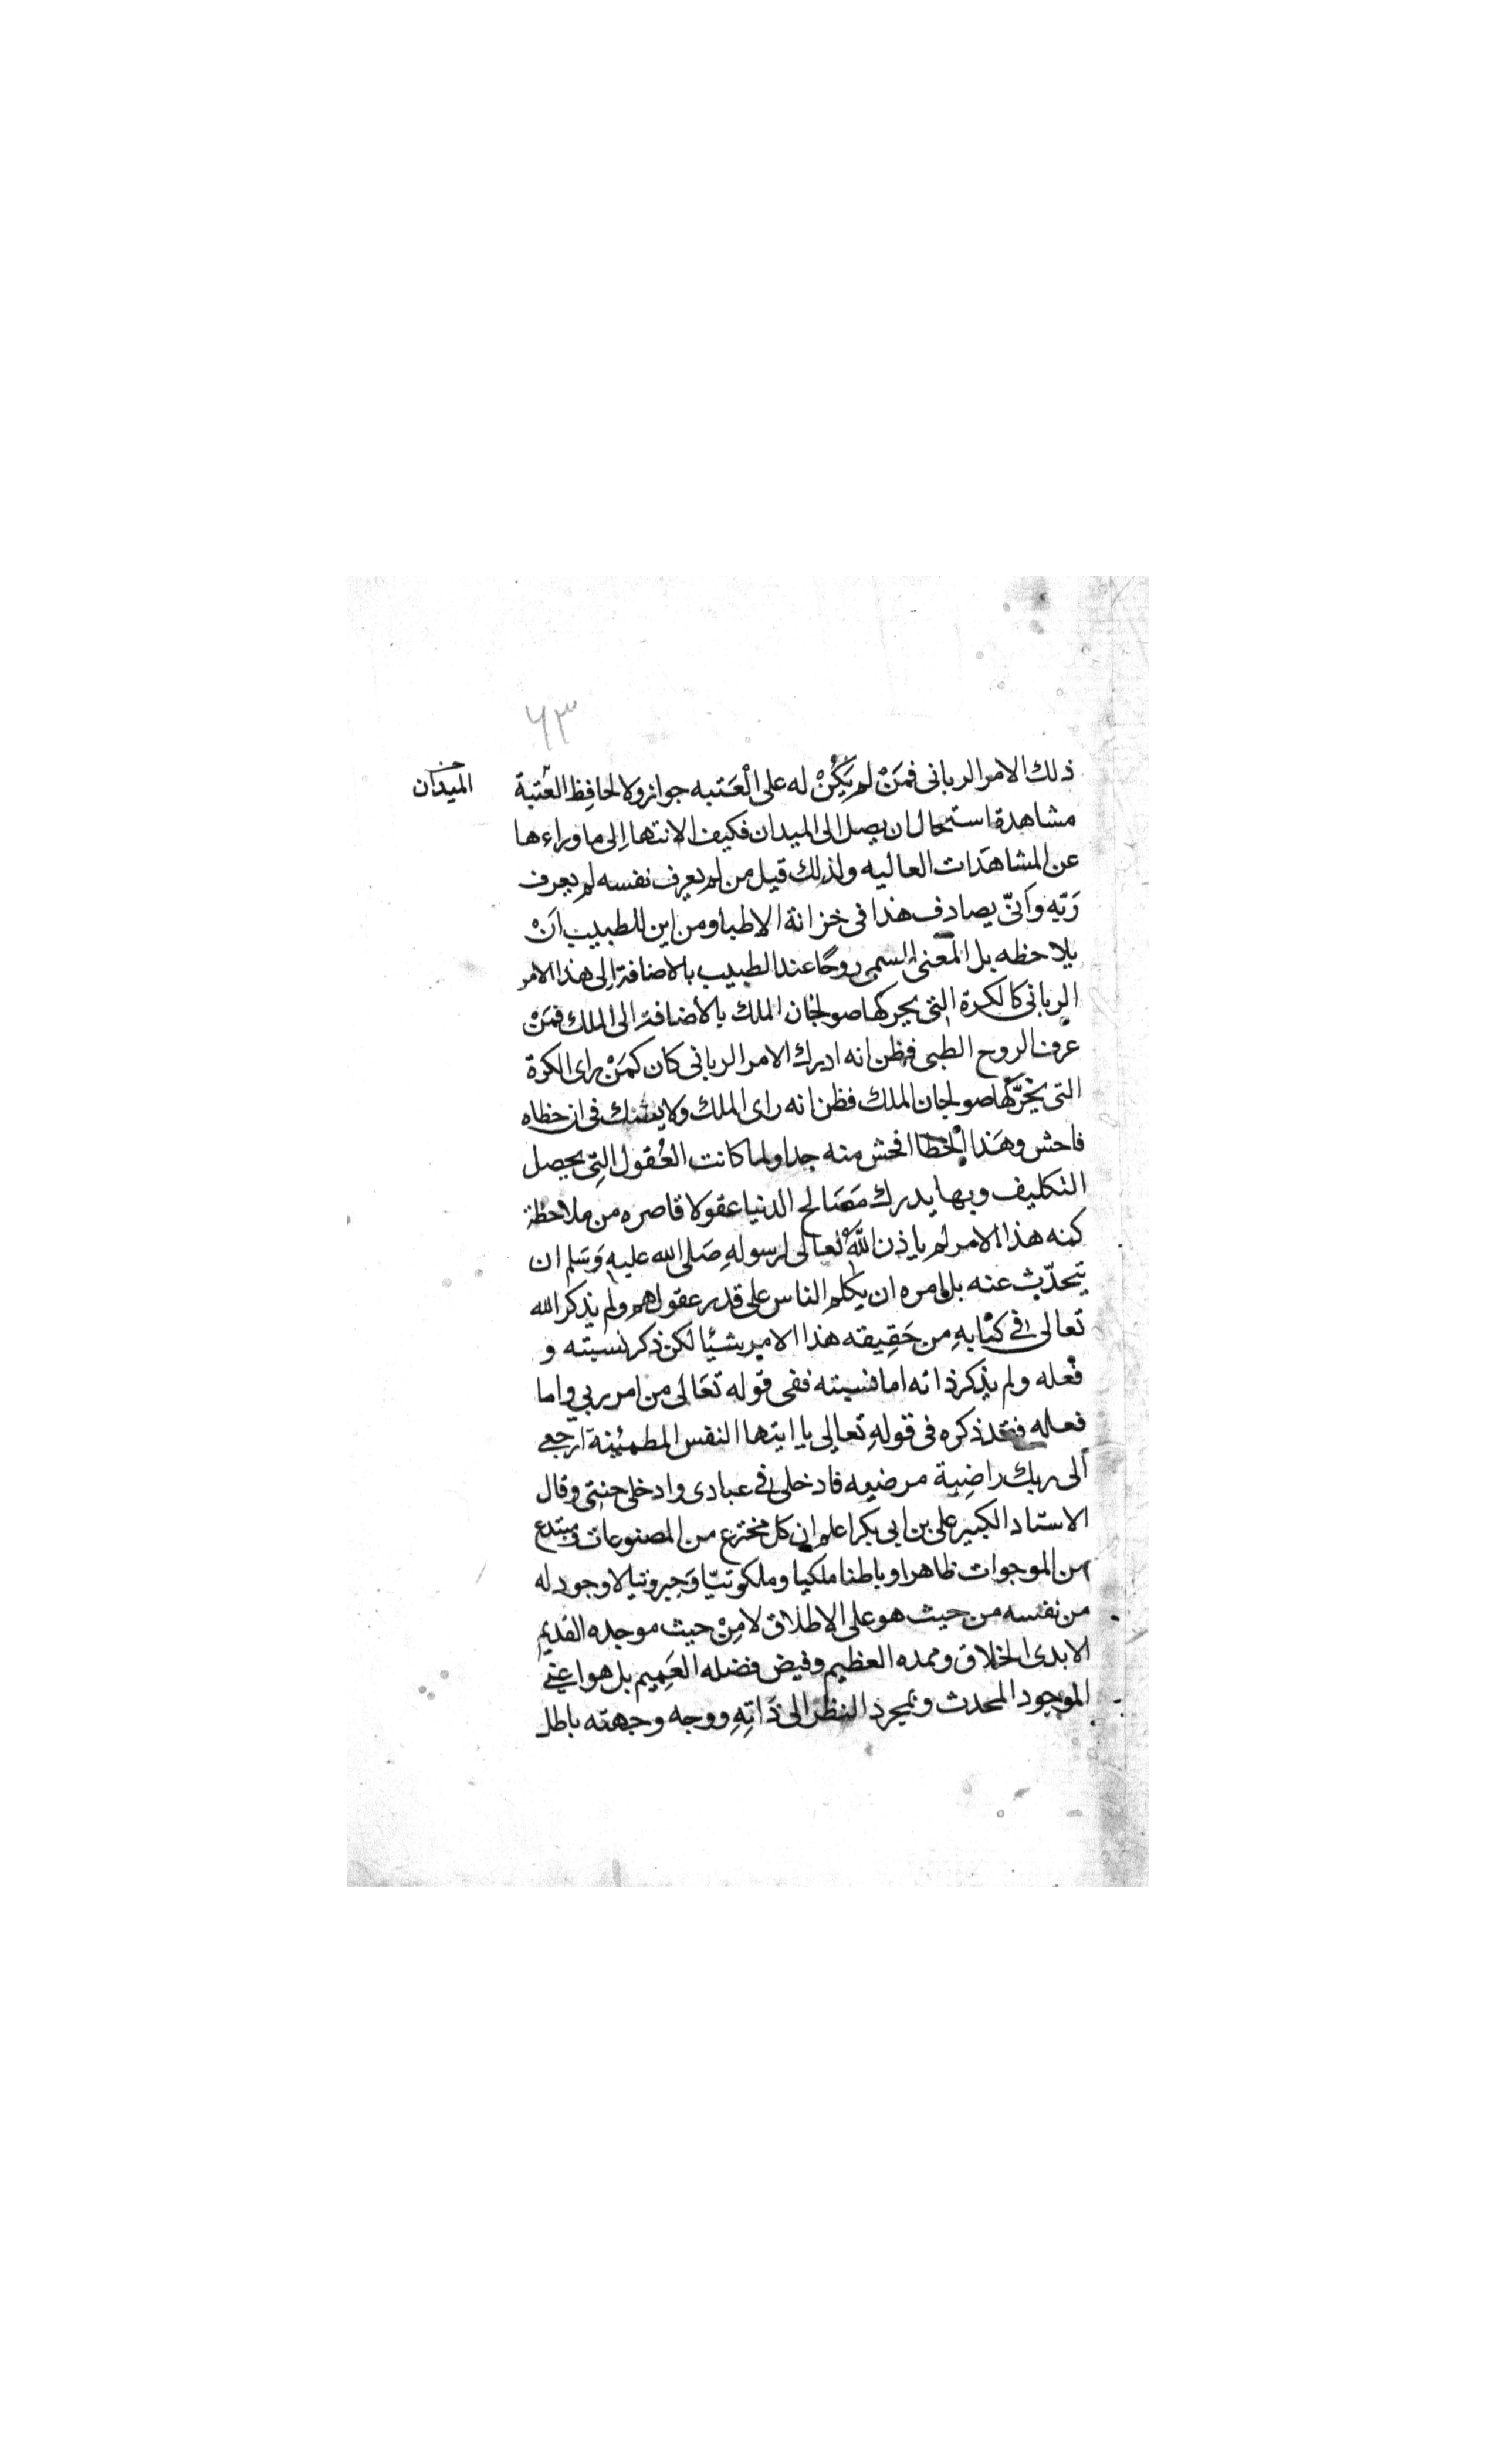 ٦٣
ذلك الامر الربانى فمَنْ لم يَكُنْ له على الْعَتبه جواز ولا لحافِظ العُتبة
الميدان
مشاهدة استحال ان يصل الى الميدان فكيف الانتها اِلى ما وراءها
عن المشاهَدات العاليه ولذلك قيل من لم يعرف نفسه لم يعرف
رَبّه وَاَنّى يصادف هذا فى خزانة الاطبا ومن اين للطبيب اَنْ
يلاحظه بل المعنى المسمى روحًا عند الطبيب بالاضافة اِلى هذا الامر
الربانى كالكرة التى يحركها صولجان الملك بالاضافة الى الملك فمَنْ
عرف الروح الطبى فظن انه ادرك الامر الربانى كان كمَنْ راى الكرة
التى يحرّكها صولجان الملك فظن انه راى الملك ولا يشك فى ان خطاه
فاحش وهَذا الْخطا افحش منه جدا ولما كانت العُقول التِى يحصل
التكليف وبها يدرك مَصَالح الدنيا عقولا قاصره من ملاحظة
كنه هذا الامر لم ياذن اللّٰه تعالى لرسولهِ صَلى الله عليهِ وَسَلم ان
يتحدّث عنه بل امره ان يكلم الناس على قدر عقولهم ولم يذكر الله
تعالى فى كتابهِ من حَقِيقته هذا الامر شيْئا لكن ذكر نسبته و
فعله ولم يذكر ذاته اما نسبته ففى قوله تعَالى من امر ربي واما
فعله فقد ذكره فى قولهِ تعالى يا ايتها النفس المطمئينة ارجعى
الى ربك راضِية مرضيه فادخلى فى عبادى وادخلى جنتى وقال
الاستاد الكبير على بن ابى بكر اعلم ان كل مخترع من المصنوعات ومبتدع
من الموجوات ظاهرا وباطنا ملكيا وملكوتيّا وَجبروتيا لا وجود له
من نفسه من حيث هو على الاطلاق لا مِنْ حيث موجده القديم
الابدى الخلاق وممده العظيم وفيض فضله العَمِيم بل هو اعنى
الموجود المحدث وبمجرد النظر الى ذَاتِهِ ووجه وجهته باطل